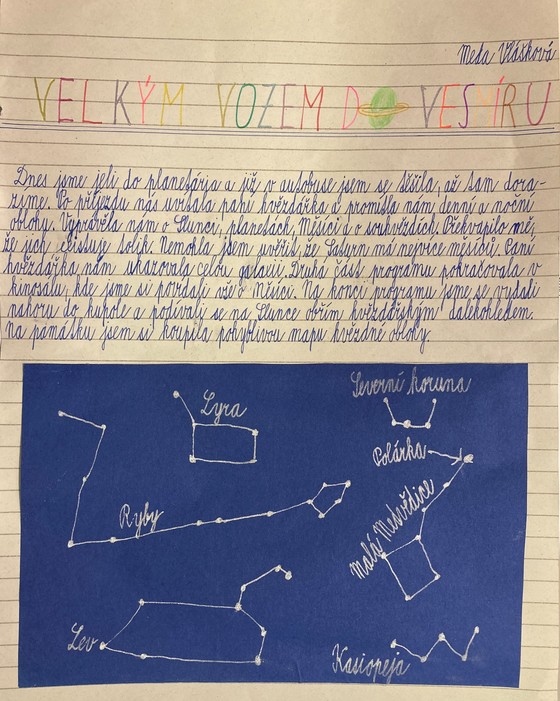 Meda Vlášková
VELKÝM VOZEM DO VESMÍRU
Dnes jsme jeli do planetária a již v autobuse jsem se těšila, až tam dora-
zíme. Po příjezdu nás uvítala paní hvězdářka a promítla nám denní a noční
oblohy. Vyprávěla nám o Slunci, planetách, Měsíci a o souhvězdích. Překvapilo mě,
že jich existuje tolik. Nemohla jsem uvěřit, že Saturn má nejvíce měsíců. Paní
hvězdářka nám ukazovala celou galaxii. Druhá část programu pokračovala v
kinosálu, kde jsme si povídali vše o Měsíci. Na konci programu jsme se vydali
nahoru do kupole a podívali se na Slunce obřím hvězdářským dalekohledem.
Na památku jsem si koupila pohyblivou mapu hvězdné oblohy.
Severní koruna
Lyra
Polárka
Malá Medvědice
Ryby
Lev
Kasiopeja